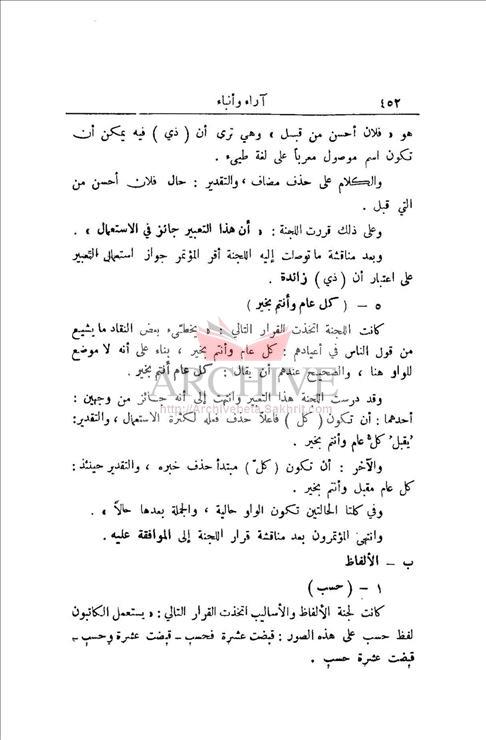 ٤٥٢
آراء وأنباء
هو « فلان أحسن من قبل » وهي ترى أن ( ذي ) فيه يمكن أن
تكون اسم موصول معرباً على لغة طيىء .
والكلام على حذف مضاف ، والتقدير : حال فلان أحسن من
التي قبل .
وعلى ذلك قررت اللجنة : « أن هذا التعبير جائز في الاستعمال » .
وبعد مناقشة ما توصلت إليه اللجنة أقر المؤتمر جواز استعمال التعبير
على اعتبار أن ( ذي ) زائدة .
٥ – ( كل عام وأنتم بخير )
كانت اللجنة اتخذت القرار التالي : « يخطىء بعض النقاد ما يشيع
من قول الناس في أعيادهم : كل عام وأنتم بخير ، بناء على أنه لا موضع
للواو هنا ، والصحيح عندهم أن يقال : كل عام أنتم بخير .
وقد درست اللجنة هذا التعبير وانتهت إلى أنه جائز من وجهين :
أحدهما : أن تكون ( كل ) فاعلاً حذف فعله لكثرة الاستعمال ، والتقدير :
يُقبلُ كلُّ عام وأنتم بخير .
والآخر : أن تكون ( كلّ ) مبتدأ حذف خبره ، والتقدير حينئذ :
كل عام مقبل وأنتم بخير .
وفي كلتا الحالتين تكون الواو حالية ، والجملة بعدها حالاً » .
وانتهى المؤتمرون بعد مناقشة قرار اللجنة إلى الموافقة عليه .
ب – الألفاظ
١ – ( حسب )
كانت لجنة الألفاظ والأساليب اتخذت القرار التالي : « يستعمل الكاتبون
لفظ حسب على هذه الصور : قبضت عشرة فحسب – قبضت عشرة وحسب –
قبضت عشرة حسب .
ARCHIVE
http://Archivebeta.Sakhrit.com